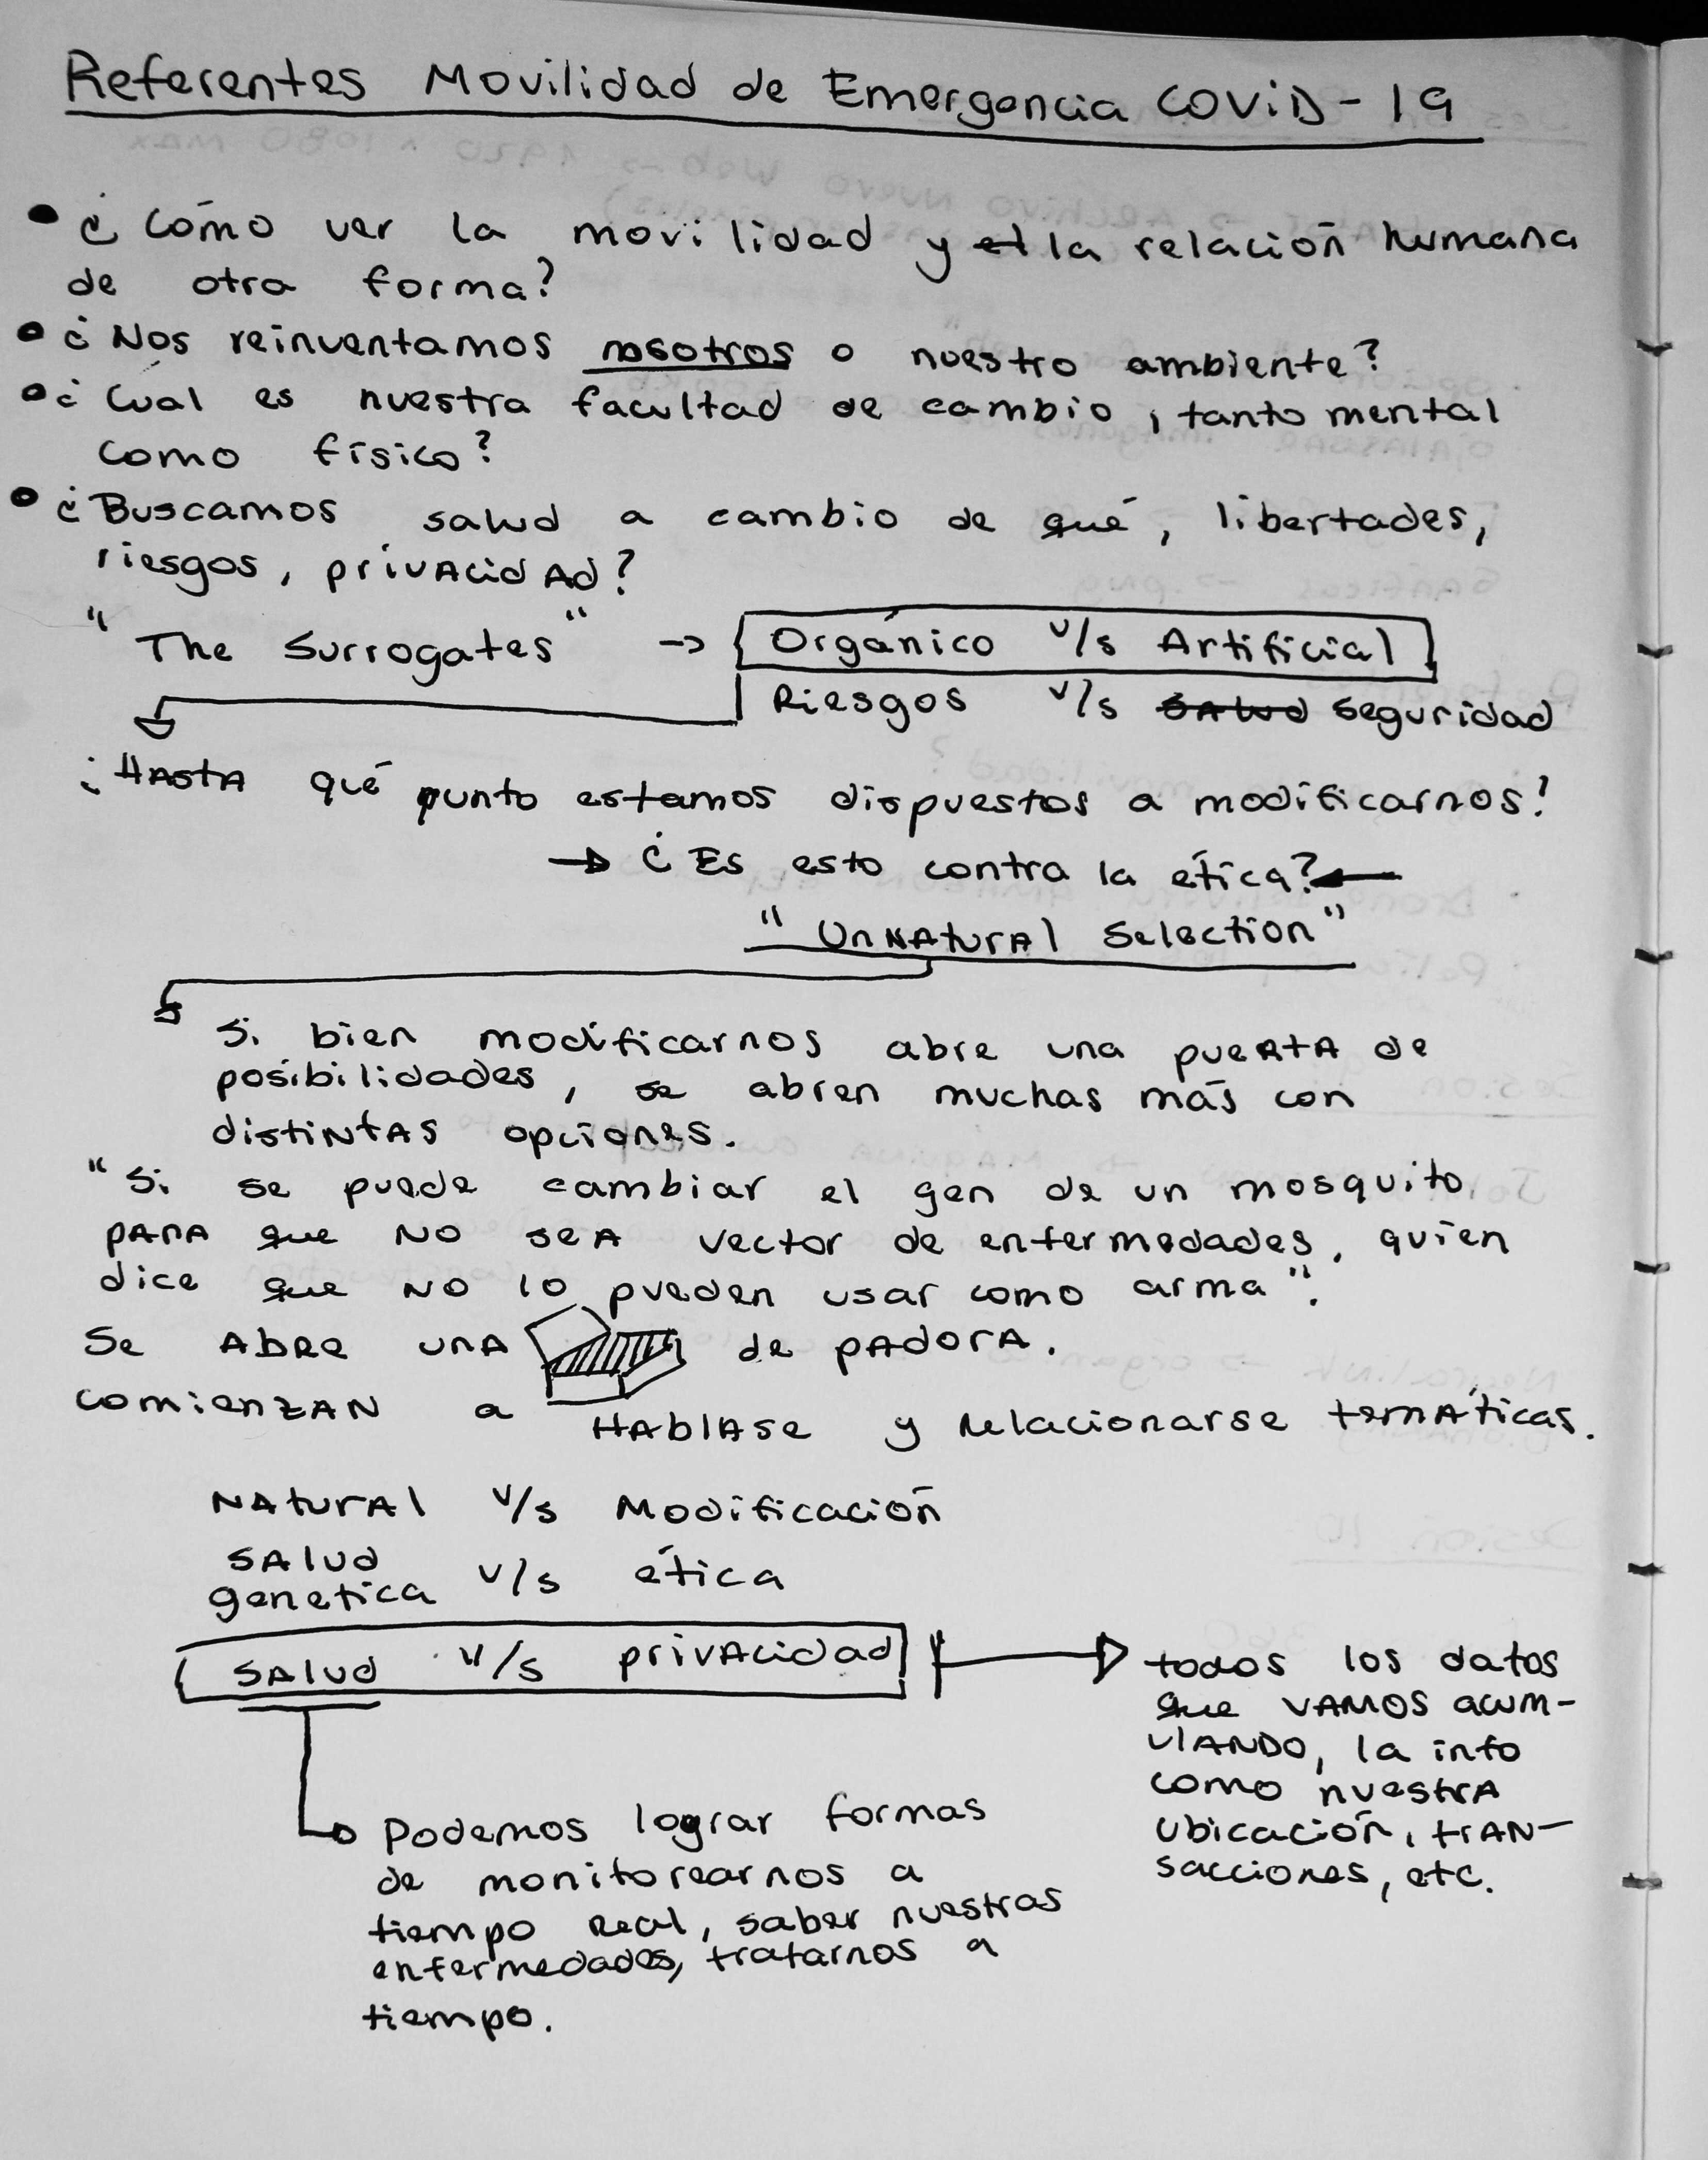 Referentes Movilidad de Emergencia COVID-19
• ¿Cómo ver la movilidad y el la relación humana
de otra forma?
• ¿Nos reinventamos nosotros o nuestro ambiente?
• ¿Cuál es nuestra facultad de cambio, tanto mental
como físico?
• ¿Buscamos salud a cambio de qué, libertades,
riesgos, privacidad?
"The Surrogates" -> Orgánico v/s Artificial
Riesgos v/s salud seguridad
¿Hasta qué punto estamos dispuestos a modificarnos?
-> ¿Es esto contra la ética? <-
"Unnatural Selection"
Si bien modificarnos abre una puerta de
posibilidades, se abren muchas más con
distintas opciones.
"Si se puede cambiar el gen de un mosquito
para que no sea vector de enfermedades, quién
dice que no lo pueden usar como arma".
Se abre una de padora.
comienzan a hablase y relacionarse temáticas.
Natural v/s Modificación
Salud
genetica v/s ética
Salud v/s privacidad
todos los datos
que vamos acum-
ulando, la info
como nuestra
ubicación, tran-
sacciones, etc.
Podemos lograr formas
de monitorearnos a
tiempo real, saber nuestras
enfermedades, tratarnos a
tiempo.